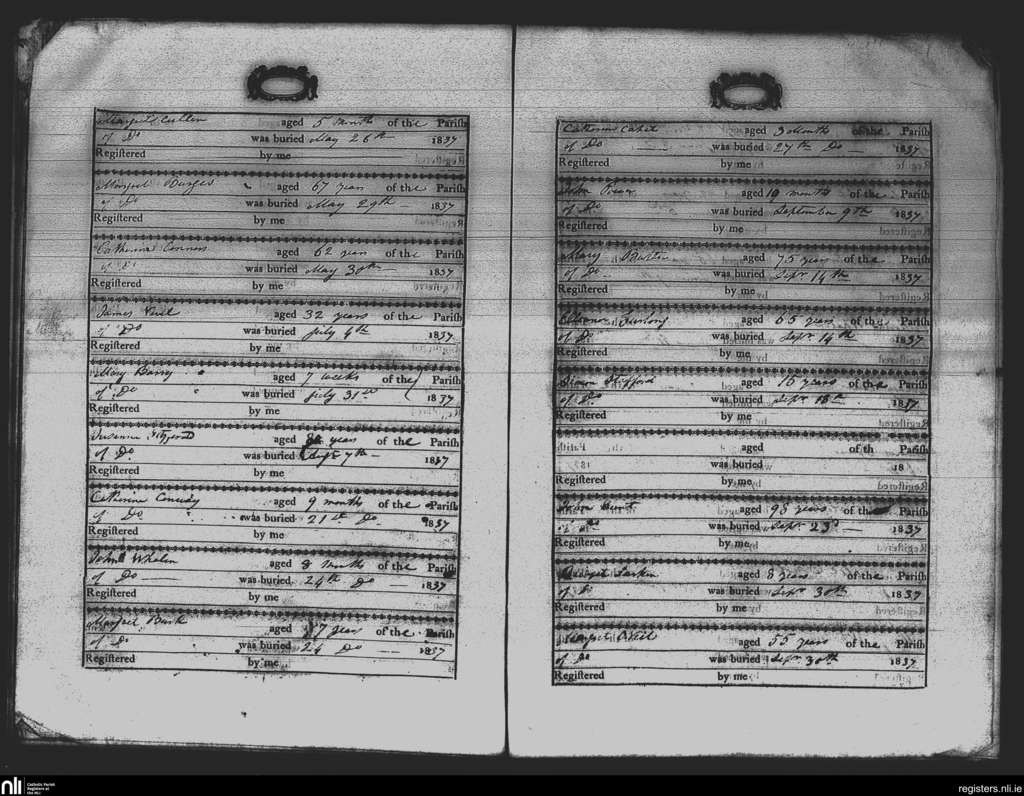 Margret Cullen aged 5 Month of the Parish
of Do was buried May 26th 1837
Registered by me
Margret Burges aged 67 years of the Parish
of Do was buried May 29th 1837
Registered by me
Catherine Connors aged 62 years of the Parish
of Do was buried May 30th 1837
Registered by me
James aged 32 years of the Parish
of Do was buried july 4th 1837
Registered by me
Mary Barry aged 7 weeks of the Parish
of Do was buried july 31st 1837
Registered by me
Fitzgerald aged years of the Parish
of Do was buried 7th 1837
Registered by me
Catherine aged 9 months of the Parish
of Do was buried 21st Do 1837
Registered by me
John Whelen aged 8 Months of the Parish
of Do was buried 24th Do 1837
Registered by me
Margret Burk aged year of the Parish
of Do was buried 24 Do 1837
Registered by me
Catherine aged 3 Months of the Parish
of Do was buried 27th Do 1837
Registered by me
John Power aged 19 months of the Parish
of Do was buried September 9th 1837
Registered by me
Mary aged 75 years of the Parish
of Do was buried Sepr 14th 1837
Registered by me
Furlong aged 65 years of the Parish
of Do was buried Sepr 14th 1837
Registered by me
Stafford aged years of the Parish
of Do was buried Sepr 18th 1837
Registered by me
aged of th Parish
was buried 18
Registered by me
aged years of the Parish
of Do was buried Sepr 23d 1837
Registered by me
Larkin aged 8 years of the Parish
of Do was buried Sepr 30th 1837
Registered by me
Margret aged 55 years of the Parish
of Do was buried Sepr 30th 1837
Registered by me
nli
Catholic Parish
Registers at
the NLI
registers.nli.ie